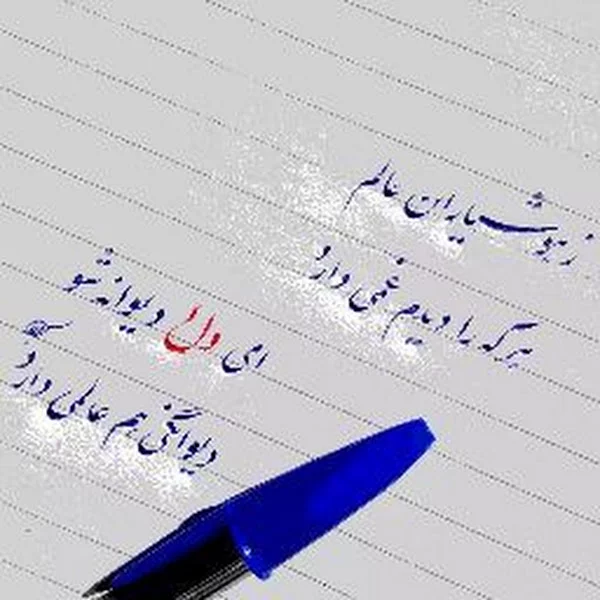 ز هوشیاران عالم
هر که را دیدم غمی دارد
ای دل دیوانه شو
دیوانگی هم عالمی دارد